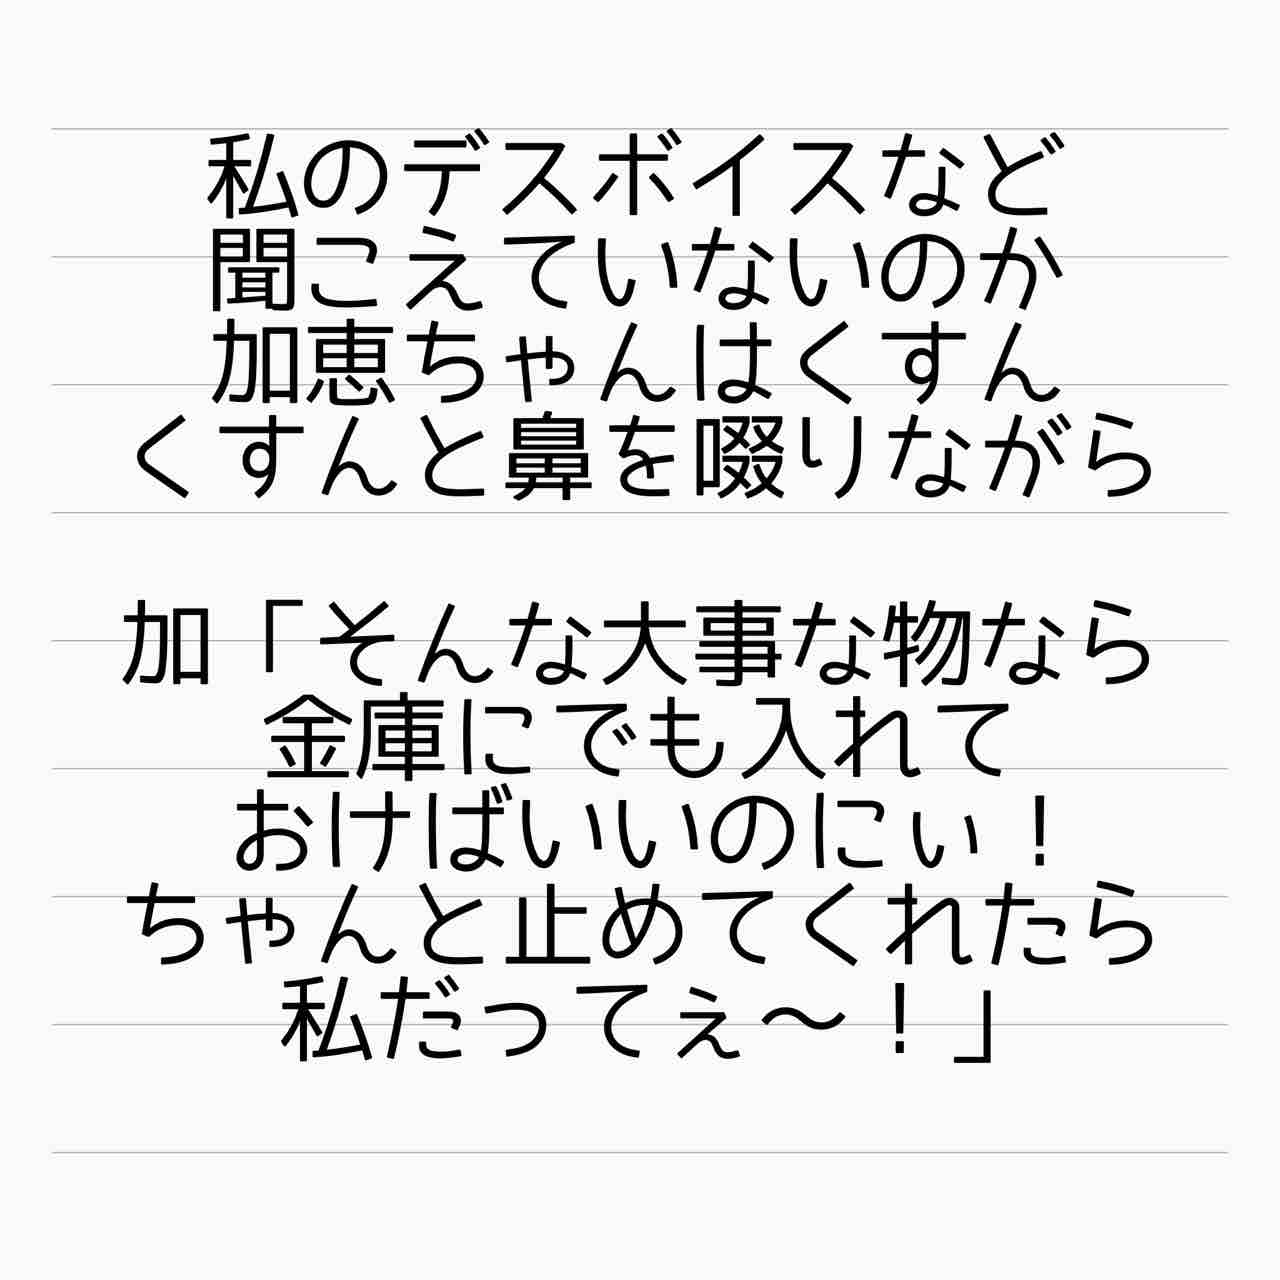 私のデスボイスなど
聞こえていないのか
加恵ちゃんはくすん
くすんと鼻を啜りながら
加「そんな大事な物なら
金庫にでも入れて
おけばいいのにぃ！
ちゃんと止めてくれたら
私だってぇ〜！」